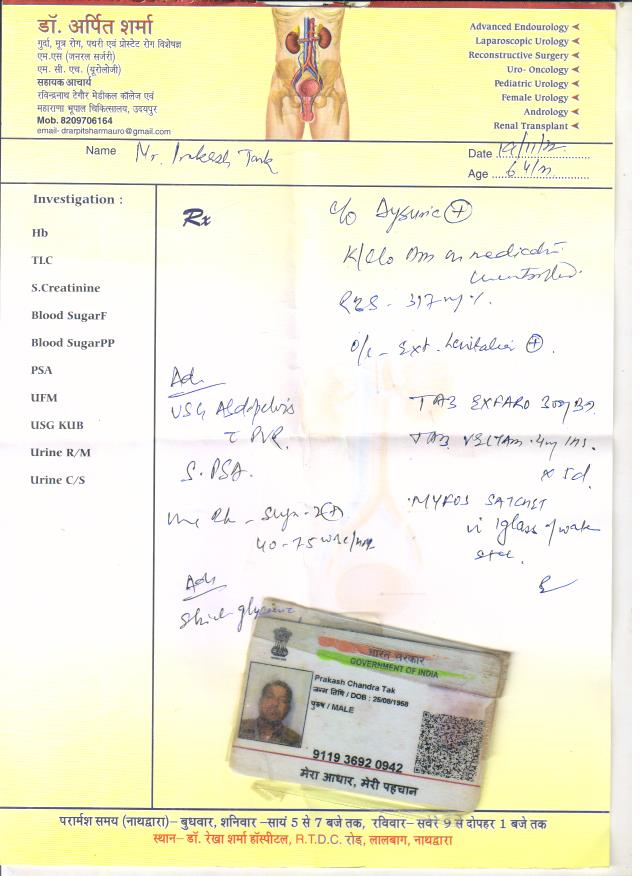 डॉ. अर्पित शर्मा
गुर्दा, मूत्र रोग, पथरी एवं प्रोस्टेट रोग विशेषज्ञ
एम.एस (जनरल सर्जरी)
एम. सी. एच. (यूरोलोजी)
सहायक आचार्य
रविन्द्रनाथ टेगौर मेडीकल कॉलेज एवं
महाराणा भूपाल चिकित्सालय, उदयपुर
Mob. 8209706164
email- drarpitsharmauro@gmail.com
Advanced Endourology
Laparoscopic Urology
Reconstructive Surgery
Uro- Oncology
Pediatric Urology
Female Urology
Andrology
Renal Transplant
Name Mr.
Date 19/11/22
Age 64/m
Investigation :
Hb
TLC
S.Creatinine
Blood SugarF
Blood SugarPP
PSA
UFM
USG KUB
Urine R/M
Urine C/S
Rx
c/o Dysuria +
K/c/o DM on medication
uncontrolled.
RBS - 317 mg%.
o/e - Ext. Genitalia +.
Adv
USG Abd/pelvis
c PVR.
S. PSA.
40-75 WBC/
Adv
Strict
TAB EXFARO 300mg BD.
TAB VELTAM .4mg HS.
x 5d.
MYFOS SATCHET
in 1 glass of water
भारत सरकार
GOVERNMENT OF INDIA
Prakash Chandra Tak
जन्म तिथि / DOB : 25/08/1958
पुरुष / MALE
9119 3692 0942
मेरा आधार, मेरी पहचान
परामर्श समय (नाथद्वारा)– बुधवार, शनिवार –सायं 5 से 7 बजे तक, रविवार– सवेरे 9 से दोपहर 1 बजे तक
स्थान– डॉ. रेखा शर्मा हॉस्पीटल, R.T.D.C. रोड़, लालबाग, नाथद्वारा